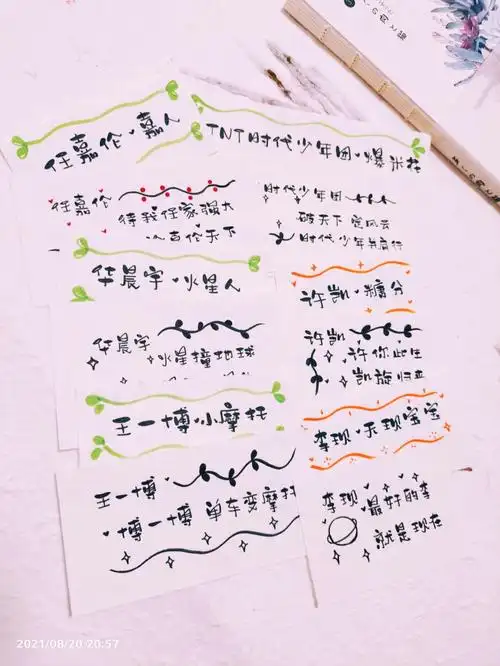 任嘉伦·嘉人
任嘉伦
待我任家强大
必吉伦天下
华晨宇·火星人
华晨宇
火星撞地球
王一博·小摩托
王一博
博一博 单车变摩托
TNT时代少年团·爆米花
时代少年团
破天下 定风云
时代少年共前行
许凯·糖分
许凯
许你此生
凯旋归来
李现·天现宝宝
李现
最好的李
就是现在
2021/08/20 20:57